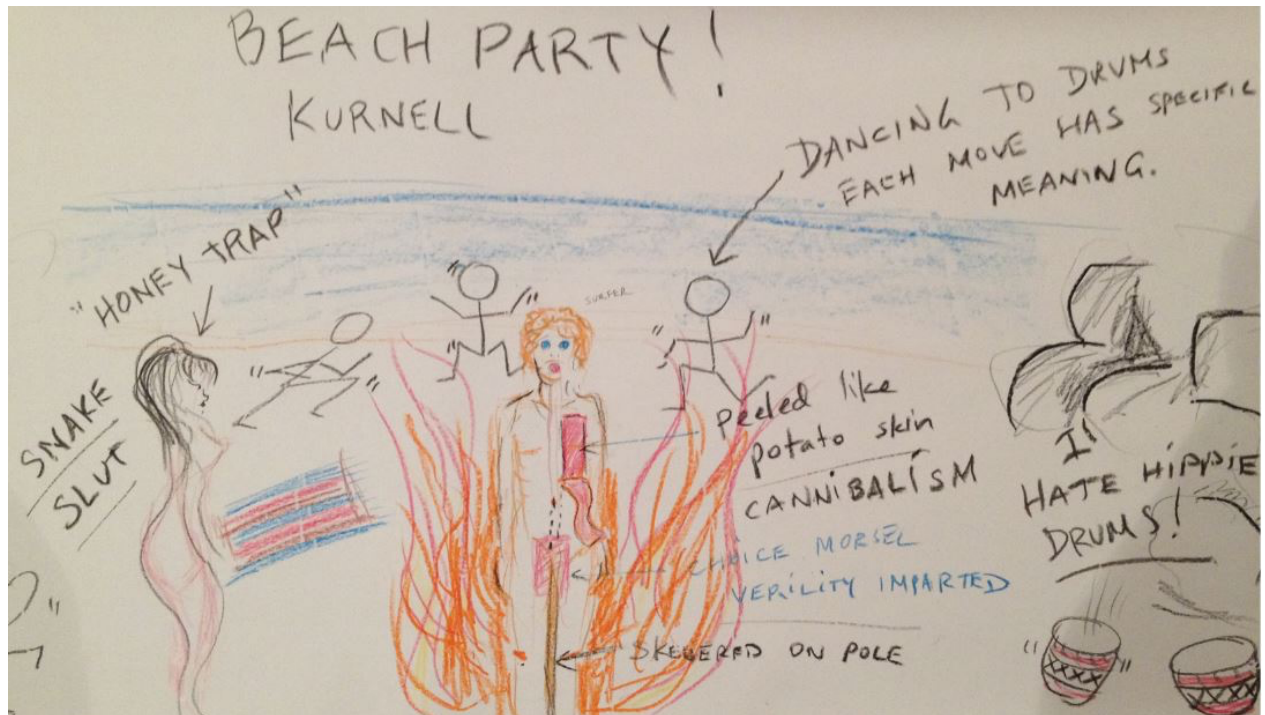 BEACH PARTY!
KURNELL
DANCING TO DRUMS
EACH MOVE HAS SPECIFIC
MEANING.
"HONEY TRAP"
SURFER
SNAKE
SLUT
peeled like
potato skin
CANNIBALISM
CHOICE MORSEL
VERILITY IMPARTED
SKEWERED ON POLE
I
HATE HIPPIE
DRUMS!